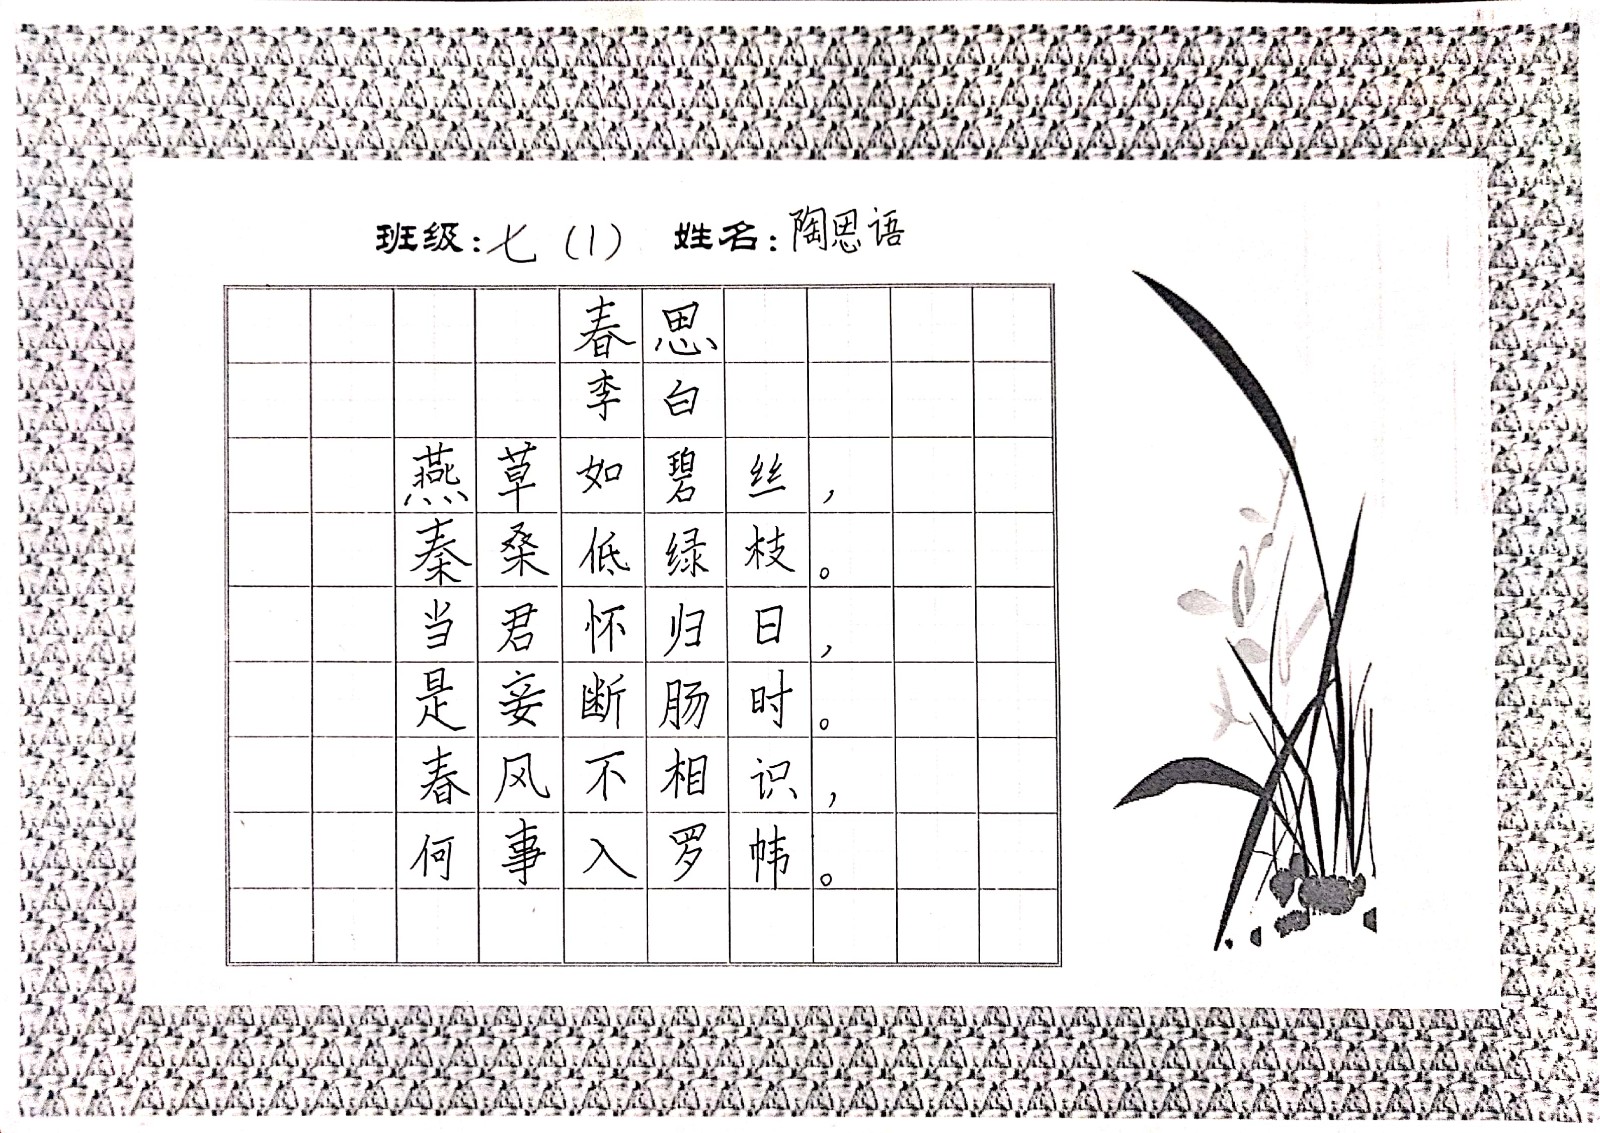 班级:七(1) 姓名:陶思语
春思
李白
燕草如碧丝,
秦桑低绿枝。
当君怀归日,
是妾断肠时。
春风不相识,
何事入罗帏。